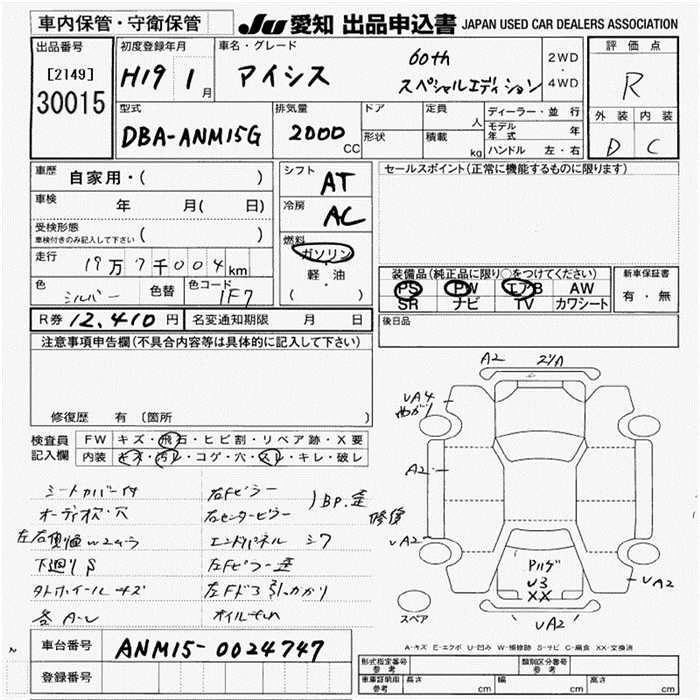 車内保管・守衛保管
JU 愛知 出品申込書 JAPAN USED CAR DEALERS ASSOCIATION
出品番号
[2149]
30015
初度登録年月
H19 1月
車名・グレード
アイシス
60th
スペシャルエディション
2WD
・
4WD
評価点
R
外装 内装
D C
型式
DBA-ANM15G
排気量
2000 CC
ドア
形状
定員 人
積載 kg
ディーラー・並行
モデル年式 年
ハンドル 左・右
車歴 自家用・( )
車検 年 月( 日)
受検形態
車検付きのみ記入して下さい ( )
走行 19万7千004km
色 シルバー 色替 色コード 1F7
シフト AT
冷房 AC
燃料
ガソリン
・
軽油
( )
セールスポイント(正常に機能するものに限ります)
装備品(純正品に限り○をつけてください)
PS PW エアB AW
SR ナビ TV カワシート
新車保証書
有・無
R券 12,410円 名変通知期限 月 日
後日品
注意事項申告欄(不具合内容等は具体的に記入して下さい)
修復歴 有 〔箇所
検査員
記入欄
FW キズ・飛石・ヒビ割・リペア跡・X要
内装 キズ・汚レ・コゲ・穴・スレ・キレ・破レ
シートカバー付
オーディオ欠・穴
下廻りS
各A-U
右Fピラー
右センターピラー
)BP.歪
エンドパネル シワ
左Fピラー歪
左Fドア引っかかり
修復
A2
UA4
A2
UA2
U3
XX
UA2
UA2
スペア
A-キズ E-エクボ U-凹み W-補修跡 S-サビ C-腐食 XX-交換済
車台番号 ANM15-0024747
登録番号
形式指定番号
参考
類別区分番号
参考
車庫証明用
参考
長さ cm 幅 cm 高さ cm